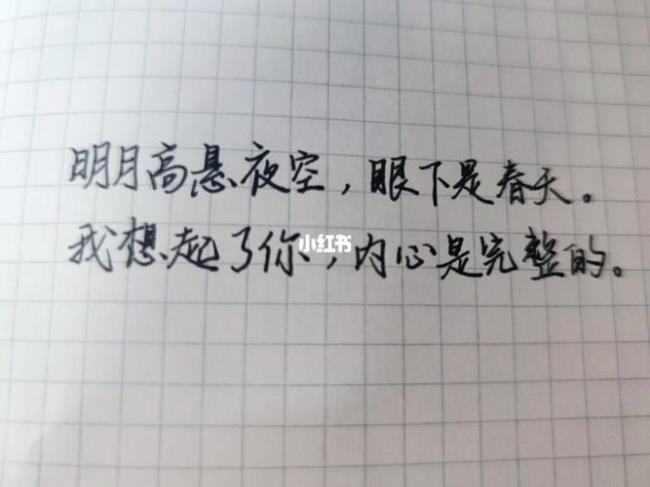 明月高悬夜空，眼下是春天。
我想起了你，内心是完整的。
小红书